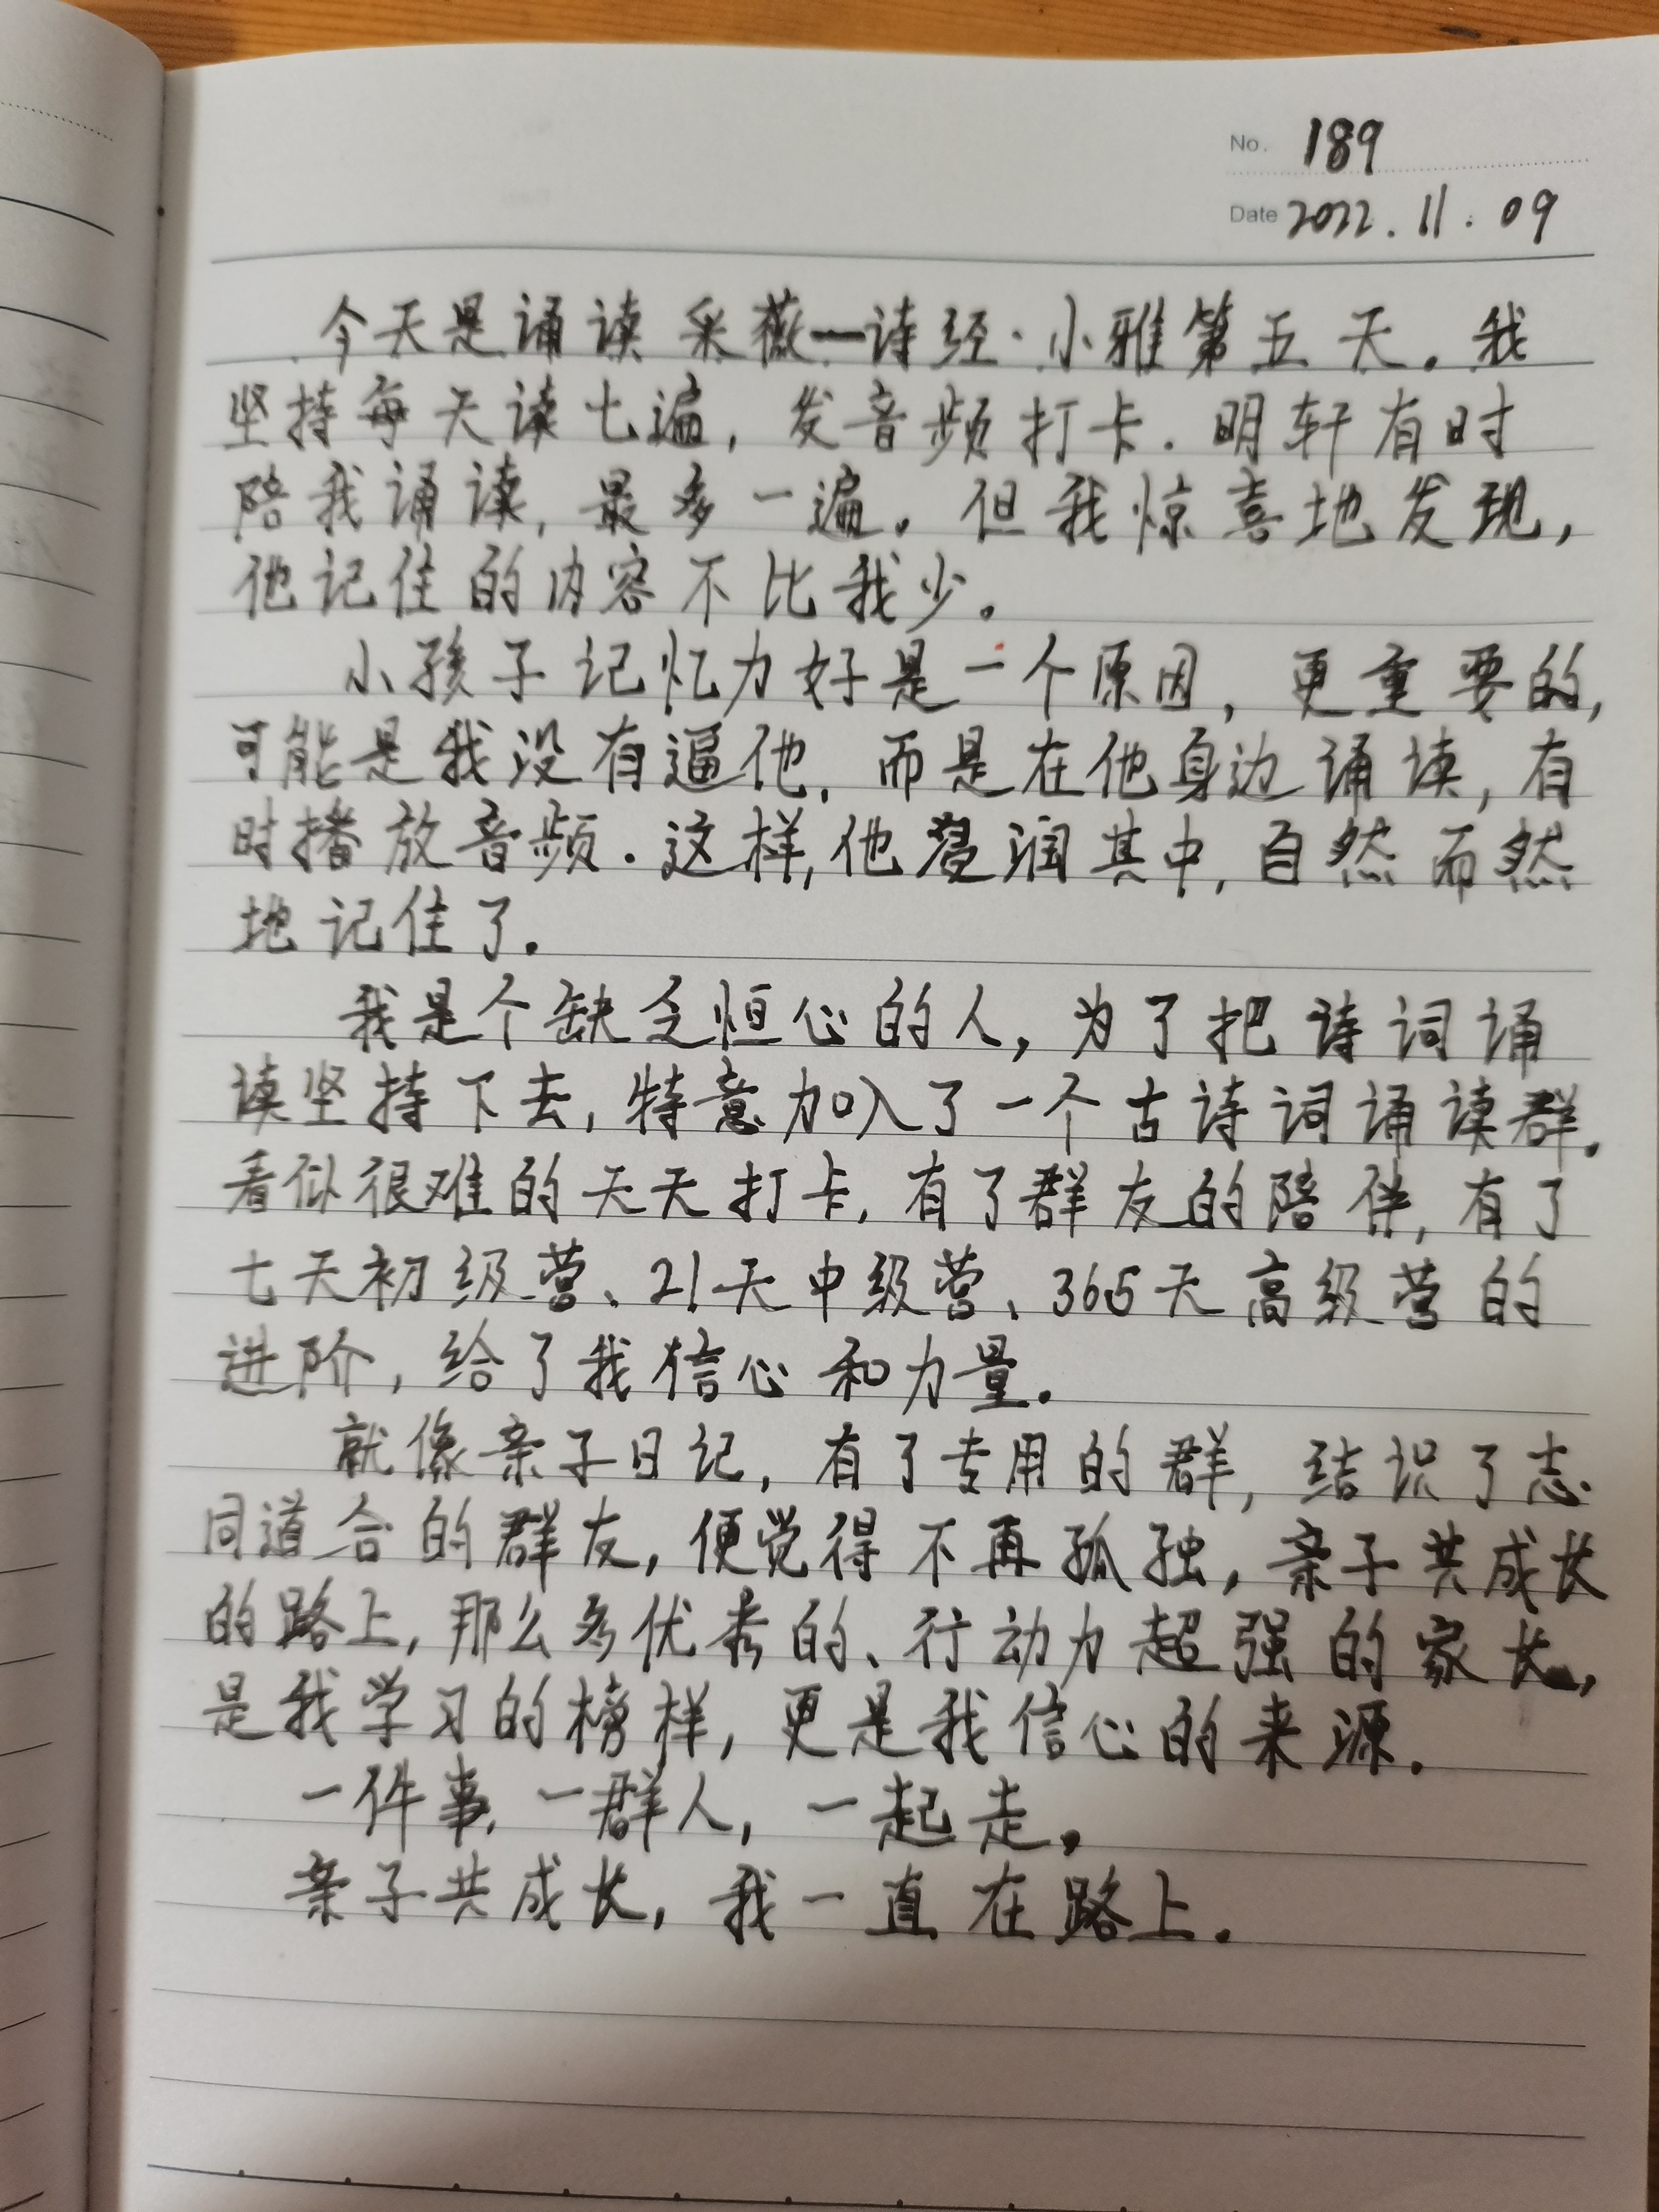 No. 189
Date 2022.11.09
今天是诵读采薇—诗经·小雅第五天。我
坚持每天读七遍，发音频打卡.明轩有时
陪我诵读，最多一遍。但我惊喜地发现，
他记住的内容不比我少。
小孩子记忆力好是一个原因，更重要的，
可能是我没有逼他，而是在他身边诵读，有
时播放音频.这样，他浸润其中，自然而然
地记住了.
我是个缺乏恒心的人，为了把诗词诵
读坚持下去，特意加入了一个古诗词诵读群。
看似很难的天天打卡，有了群友的陪伴，有了
七天初级营、21天中级营、365天高级营的
进阶，给了我信心和力量.
就像亲子日记，有了专用的群，结识了志
同道合的群友，便觉得不再孤独，亲子共成长
的路上，那么多优秀的、行动力超强的家长，
是我学习的榜样，更是我信心的来源.
一件事，一群人，一起走。
亲子共成长，我一直在路上.